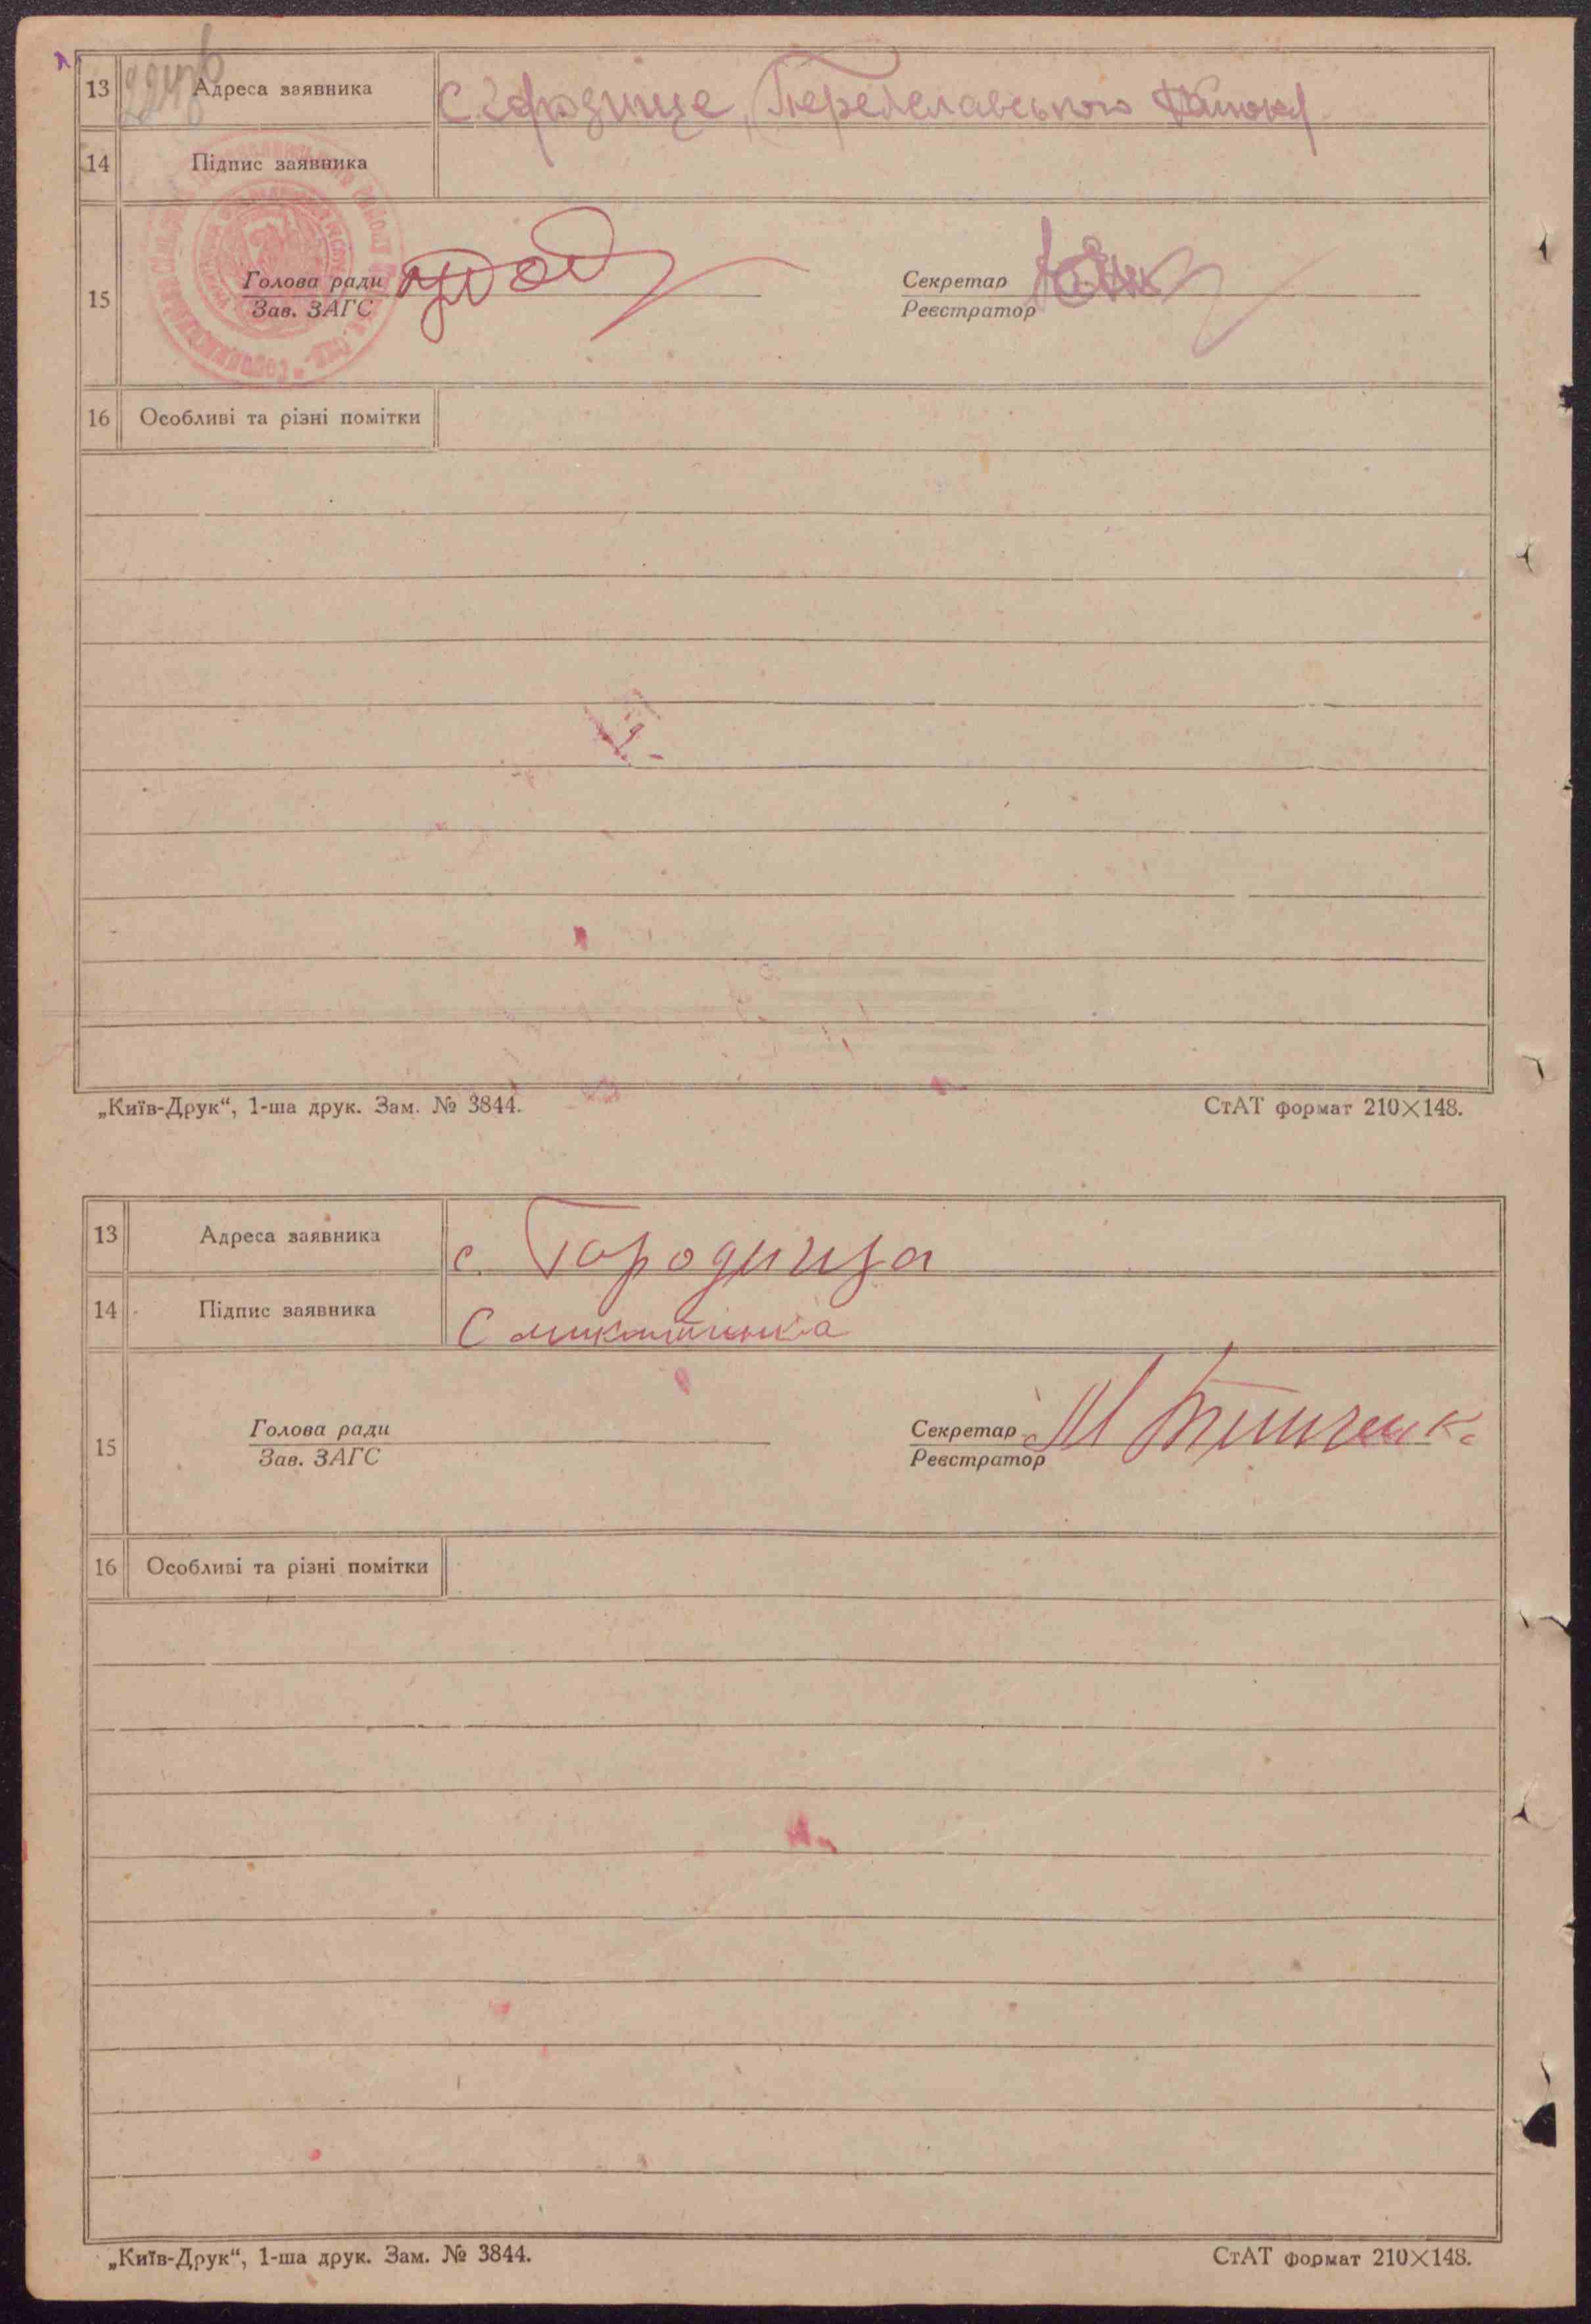 13 Адреса заявника с. Городище, Переяславського району
14 Підпис заявника
15 Голова ради Секретар
Зав. ЗАГС Реєстратор
16 Особливі та різні помітки
„Київ-Друк“, 1-ша друк. Зам. № 3844. СтАТ формат 210×148.
13 Адреса заявника с. Городища
14 Підпис заявника
15 Голова ради Секретар
Зав. ЗАГС Реєстратор
16 Особливі та різні помітки
„Київ-Друк“, 1-ша друк. Зам. № 3844. СтАТ формат 210×148.